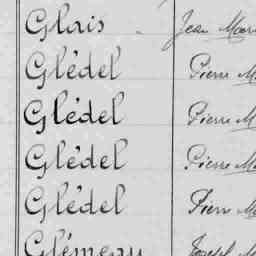 Glais Jean
Glédel Pierre
Glédel Pierre
Glédel Pierre
Glédel Pierre
Glémeau Joseph